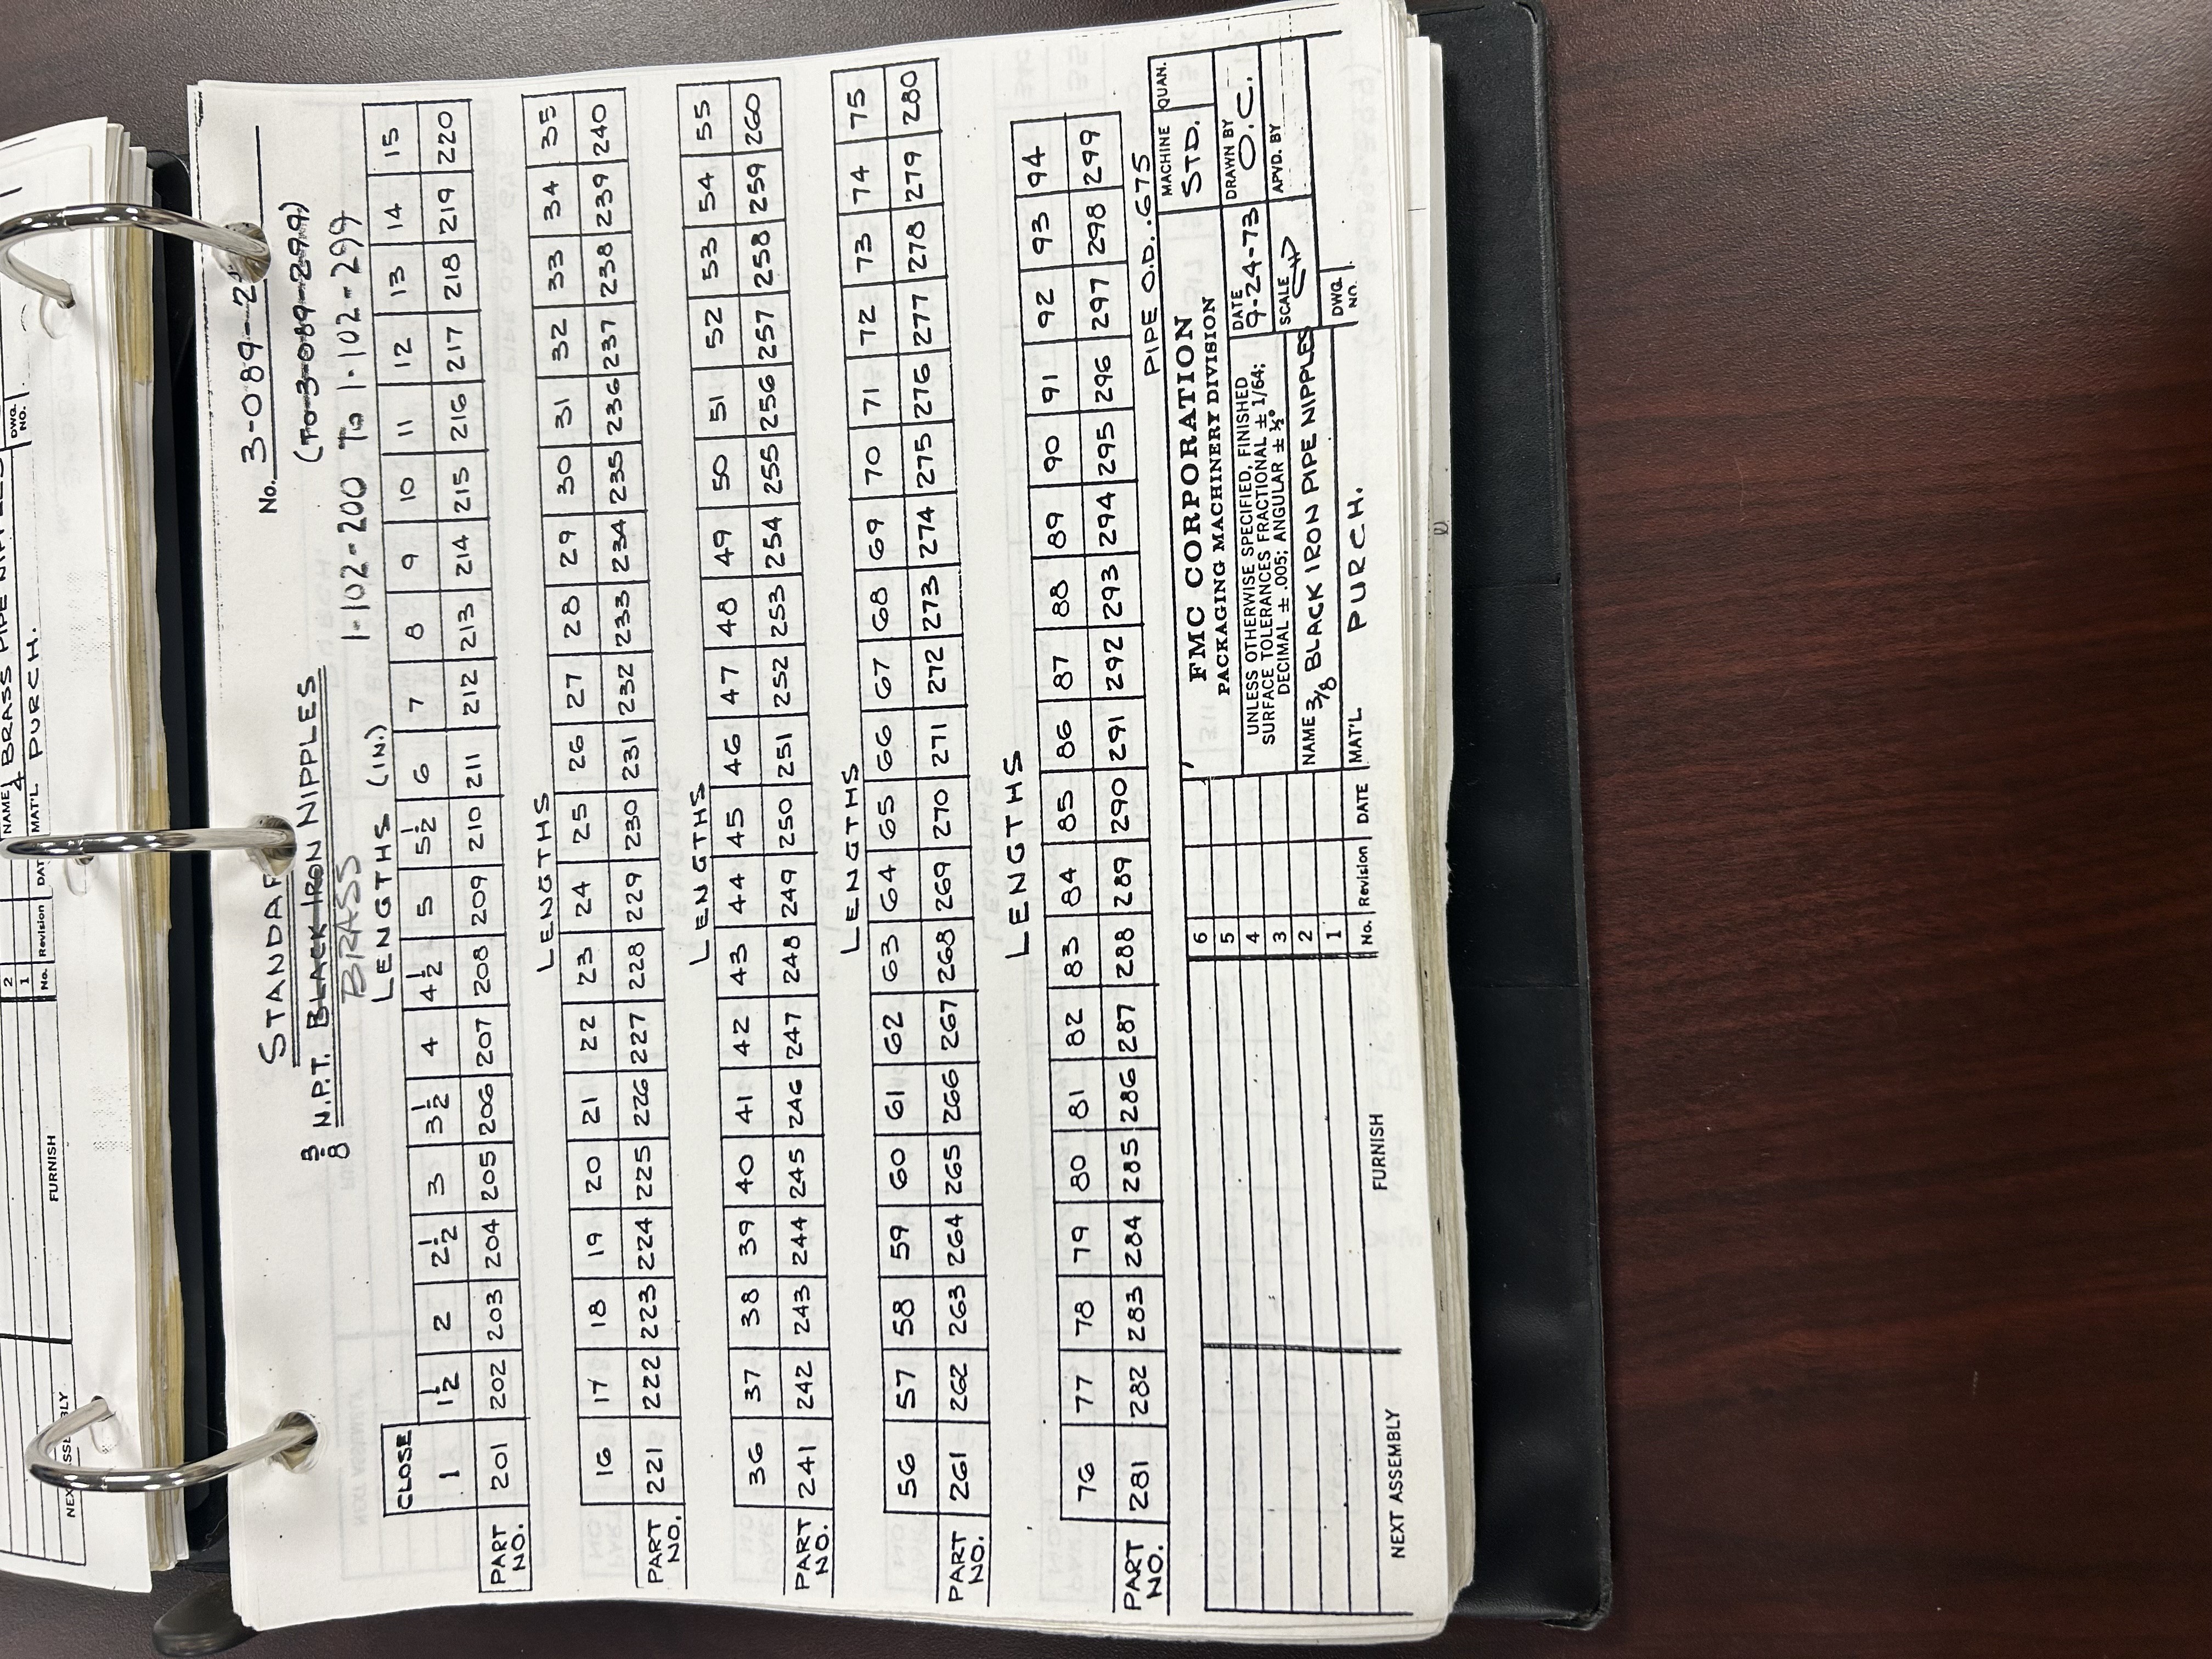 2
1
No. Revision DAT
NEXT ASSEMBLY
FURNISH
NAME 1/4 BRASS PIPE NIPPLES
MAT'L PURCH.
DWG. NO.
STANDAR
3/8 N.P.T. BLACK IRON NIPPLES
BRASS
No. 3-089-2
(TO 3-089-299)
1-102-200 To 1-102-299
LENGTHS (IN.)
CLOSE
1 1 1/2 2 2 1/2 3 3 1/2 4 4 1/2 5 5 1/2 6 7 8 9 10 11 12 13 14 15
PART NO. 201 202 203 204 205 206 207 208 209 210 211 212 213 214 215 216 217 218 219 220
LENGTHS
16 17 18 19 20 21 22 23 24 25 26 27 28 29 30 31 32 33 34 35
PART NO. 221 222 223 224 225 226 227 228 229 230 231 232 233 234 235 236 237 238 239 240
LENGTHS
36 37 38 39 40 41 42 43 44 45 46 47 48 49 50 51 52 53 54 55
PART NO. 241 242 243 244 245 246 247 248 249 250 251 252 253 254 255 256 257 258 259 260
LENGTHS
56 57 58 59 60 61 62 63 64 65 66 67 68 69 70 71 72 73 74 75
PART NO. 261 262 263 264 265 266 267 268 269 270 271 272 273 274 275 276 277 278 279 280
LENGTHS
76 77 78 79 80 81 82 83 84 85 86 87 88 89 90 91 92 93 94
PART NO. 281 282 283 284 285 286 287 288 289 290 291 292 293 294 295 296 297 298 299
PIPE O.D. .675
NEXT ASSEMBLY
FURNISH
6
5
4
3
2
1
No. Revision DATE
FMC CORPORATION
PACKAGING MACHINERY DIVISION
UNLESS OTHERWISE SPECIFIED, FINISHED
SURFACE TOLERANCES FRACTIONAL ± 1/64;
DECIMAL ± .005; ANGULAR ± ½°
NAME 3/8 BLACK IRON PIPE NIPPLES
MAT'L PURCH.
MACHINE
STD.
QUAN.
DATE
9-24-73
DRAWN BY
O.C.
SCALE
APVD. BY
DWG. NO.